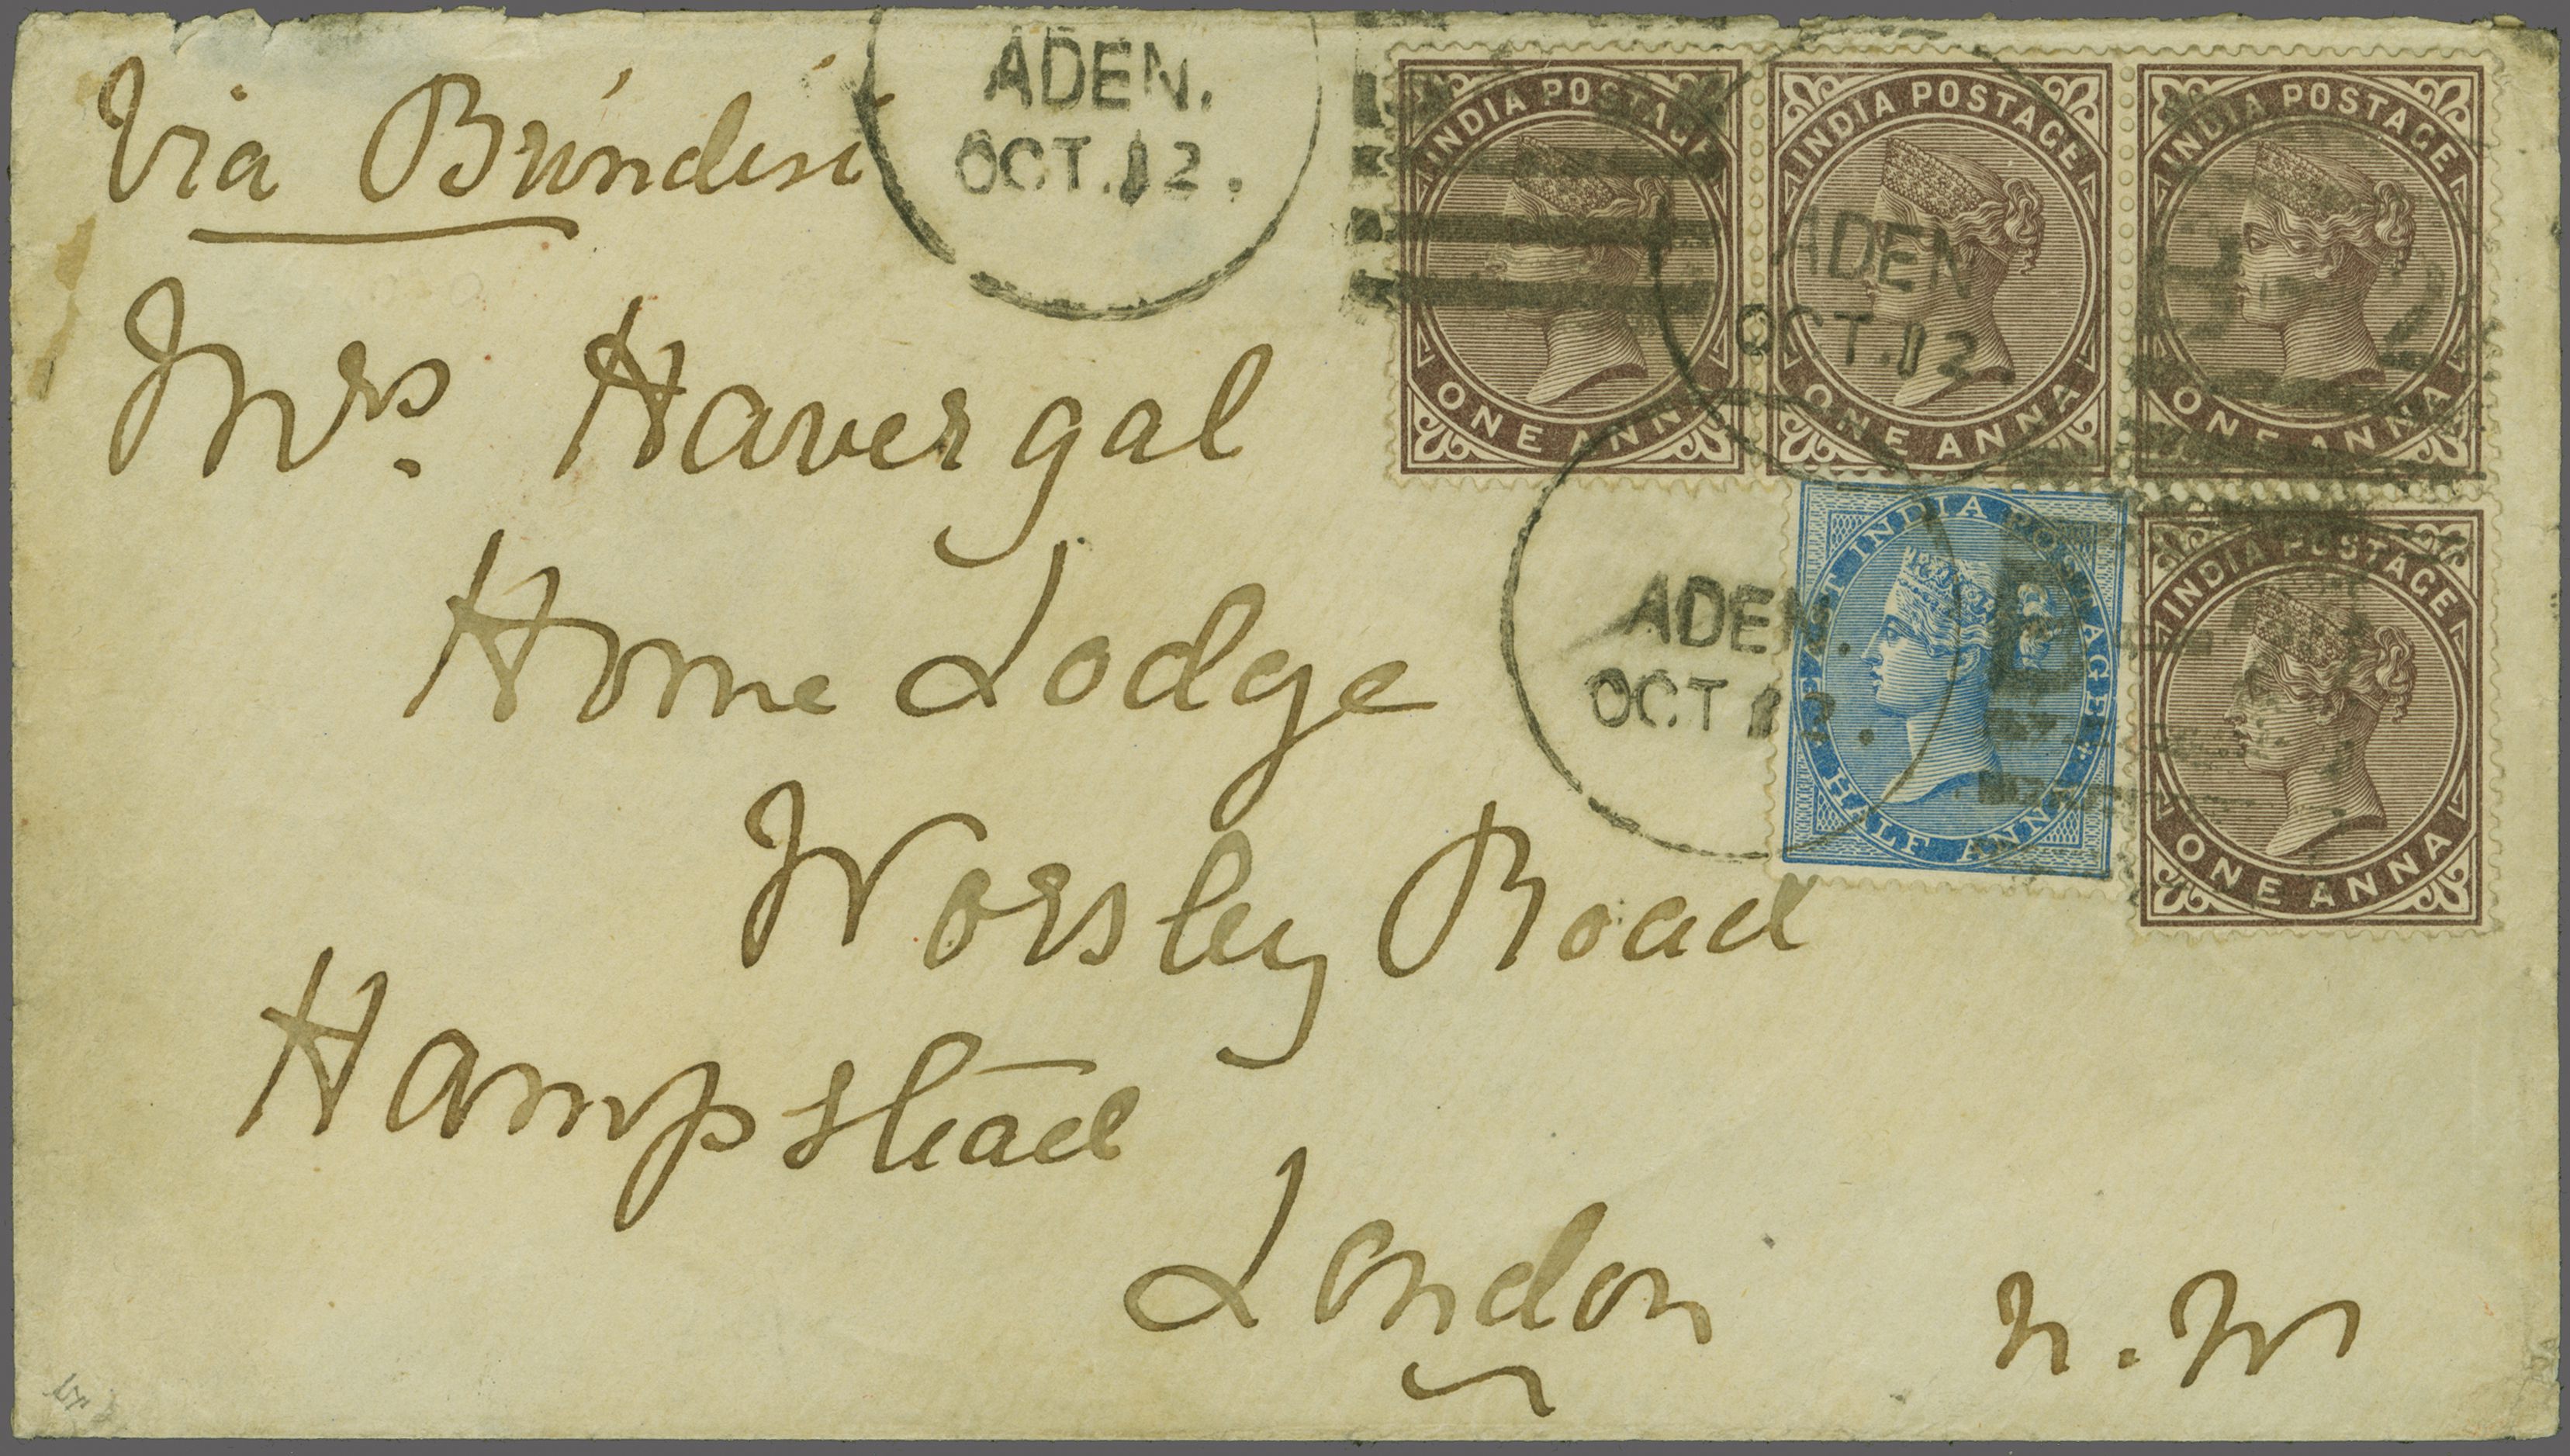 Via Brindisi
ADEN.
OCT. 12.
INDIA POSTAGE
ONE ANNA
INDIA POSTAGE
ONE ANNA
INDIA POSTAGE
ONE ANNA
ADEN
OCT. 12.
Mrs. Havergal
Home Lodge
ADEN.
OCT 12.
EAST INDIA POSTAGE
HALF ANNA
INDIA POSTAGE
ONE ANNA
Worsley Road
Hampstead
London N.W